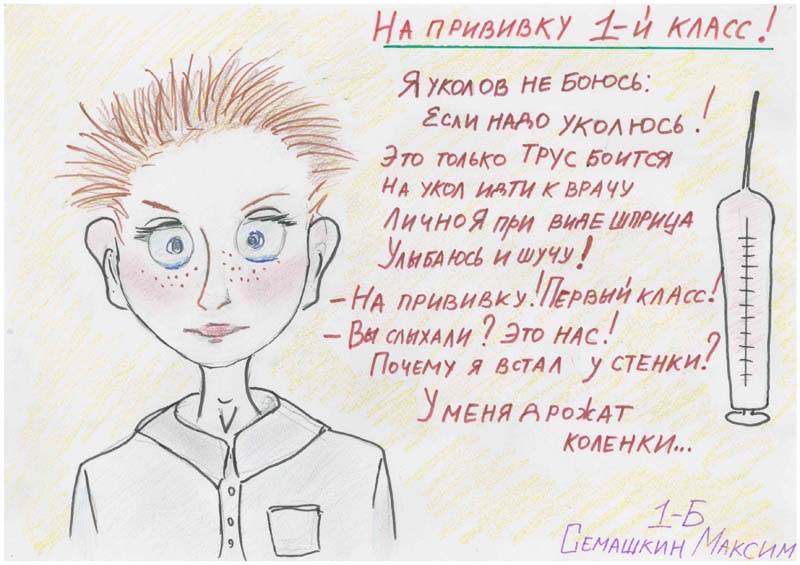 На прививку 1-й класс!
Я уколов не боюсь:
Если надо уколюсь!
Это только трус боится
На укол идти к врачу
Лично я при виде шприца
Улыбаюсь и шучу!
– На прививку! Первый класс!
– Вы слыхали? Это нас!
Почему я встал у стенки?
У меня дрожат
коленки...
1-Б
Семашкин Максим